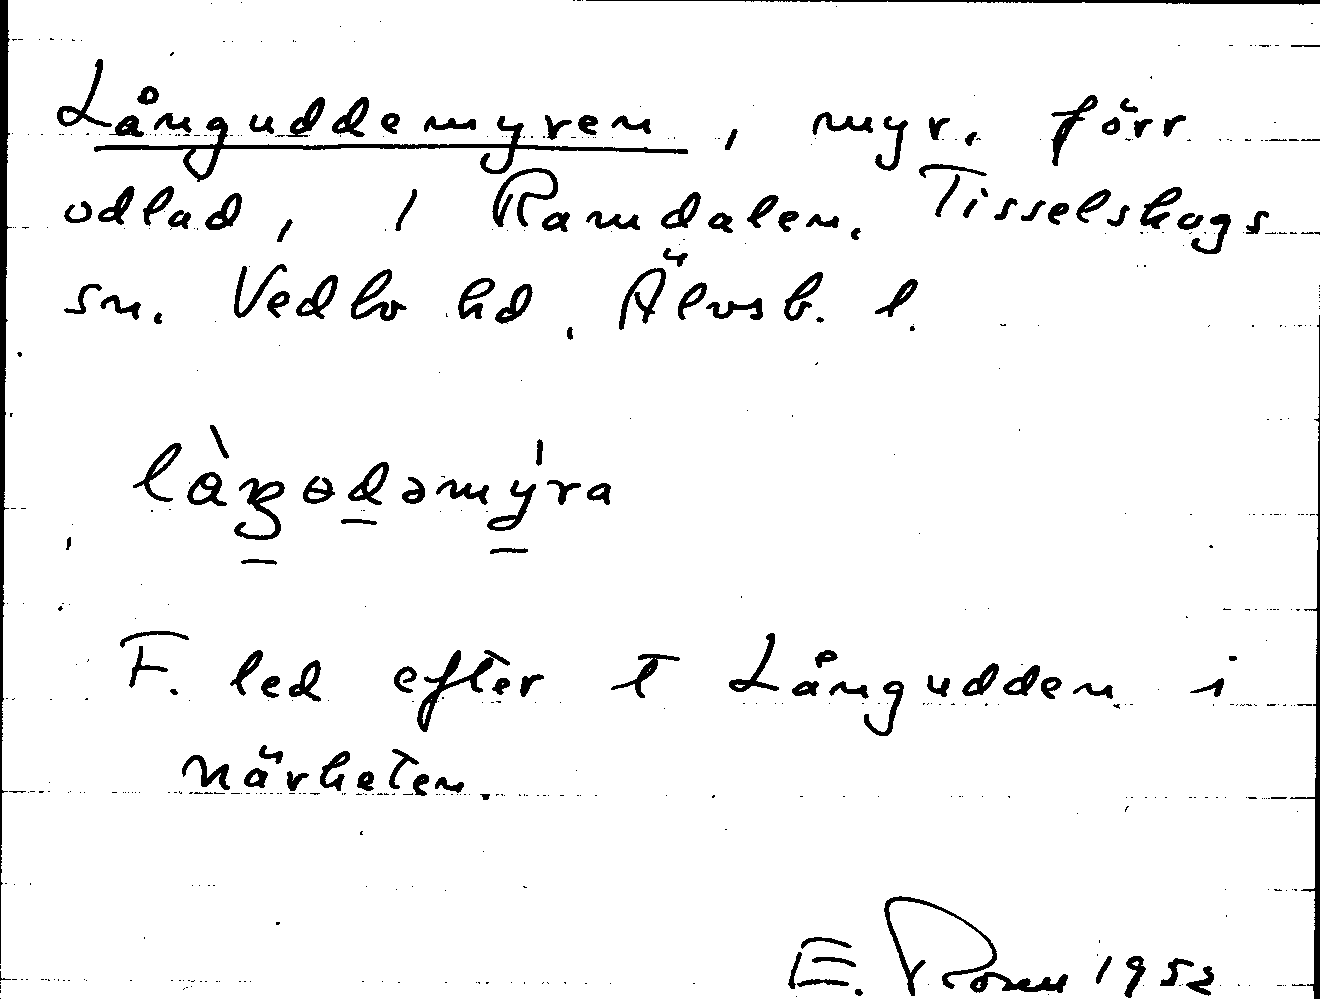 Långuddemyren, myr. förr
odlad, i Ramdalen. Tisselskogs
sn. Vedbo hd. Älvsb. l.
F. led efter t Långudden i
närheten.
E. 1952